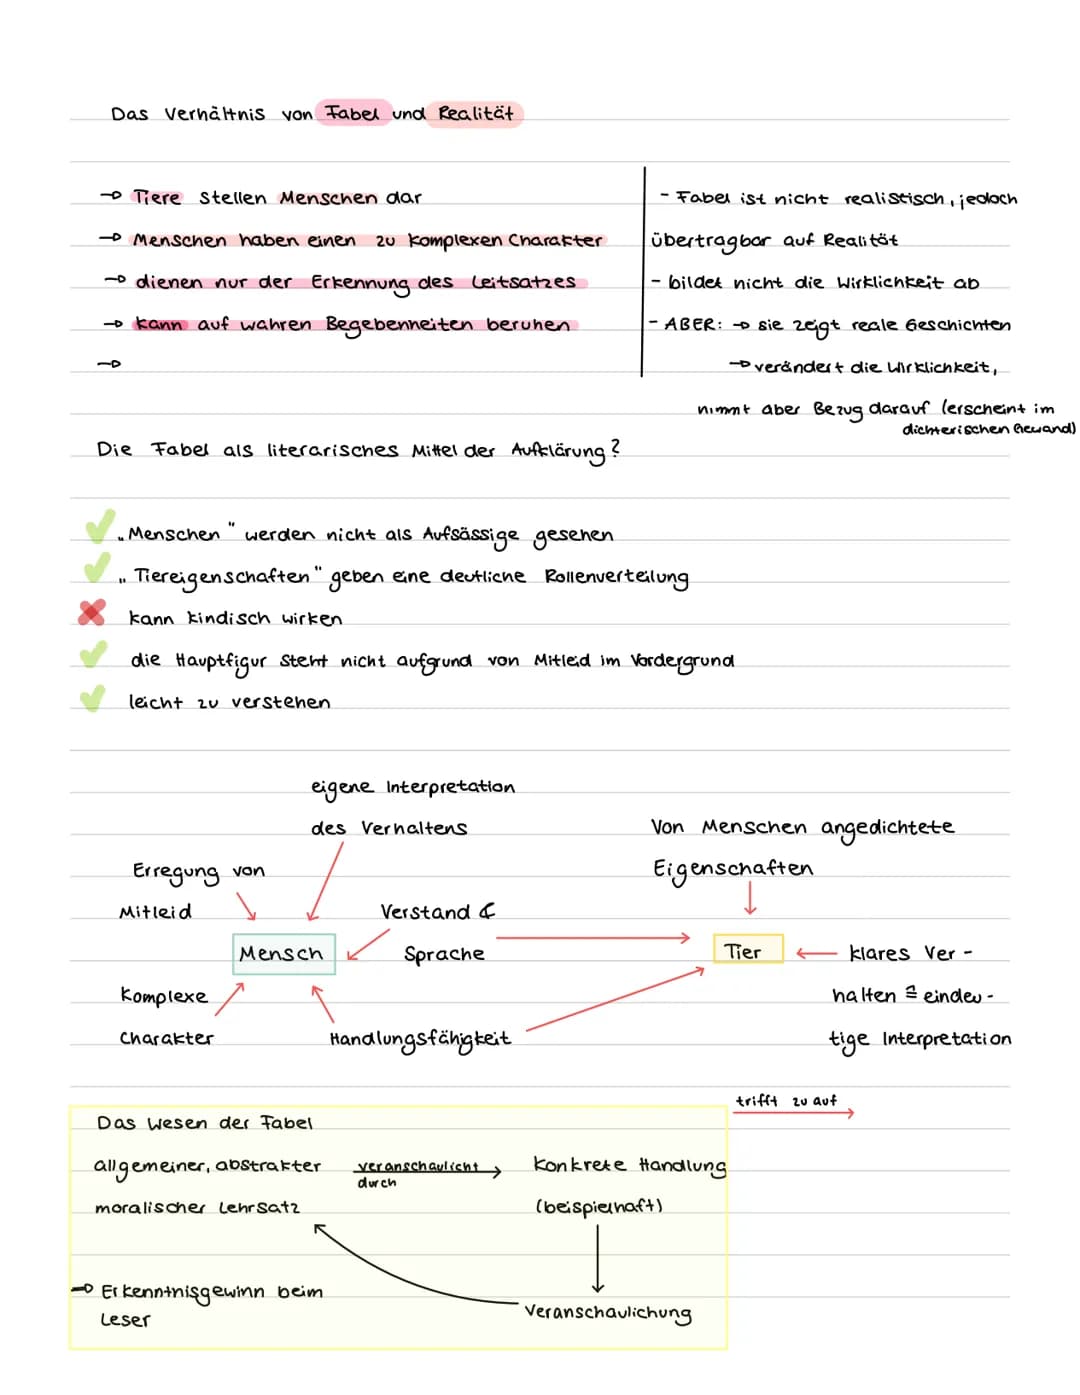 Das Verhältnis von Fabel und Realität
→ Tiere stellen Menschen dar
→ Menschen haben einen zu komplexen Charakter
→ dienen nur der Erkennung des Leitsatzes
→ kann auf wahren Begebenheiten beruhen
→
- Fabel ist nicht realistisch, jedoch
übertragbar auf Realität
- bildet nicht die Wirklichkeit ab
- ABER: → sie zeigt reale Geschichten
→ verändert die Wirklichkeit,
nimmt aber Bezug darauf (erscheint im
dichterischen Gewand)
Die Fabel als literarisches Mittel der Aufklärung?
„Menschen" werden nicht als Aufsässige gesehen
„Tiereigenschaften" geben eine deutliche Rollenverteilung
kann kindisch wirken
die Hauptfigur steht nicht aufgrund von Mitleid im Vordergrund
leicht zu verstehen
eigene Interpretation
des Verhaltens
Erregung von
Mitleid
Verstand &
Sprache
Mensch
Komplexe
Charakter
Handlungsfähigkeit
Von Menschen angedichtete
Eigenschaften
Tier
klares Ver-
halten ≙ eindeu-
tige Interpretation
trifft zu auf
Das Wesen der Fabel
allgemeiner, abstrakter
moralischer Lehrsatz
veranschaulicht
durch
Konkrete Handlung
(beispielhaft)
Veranschaulichung
→ Erkenntnisgewinn beim
Leser